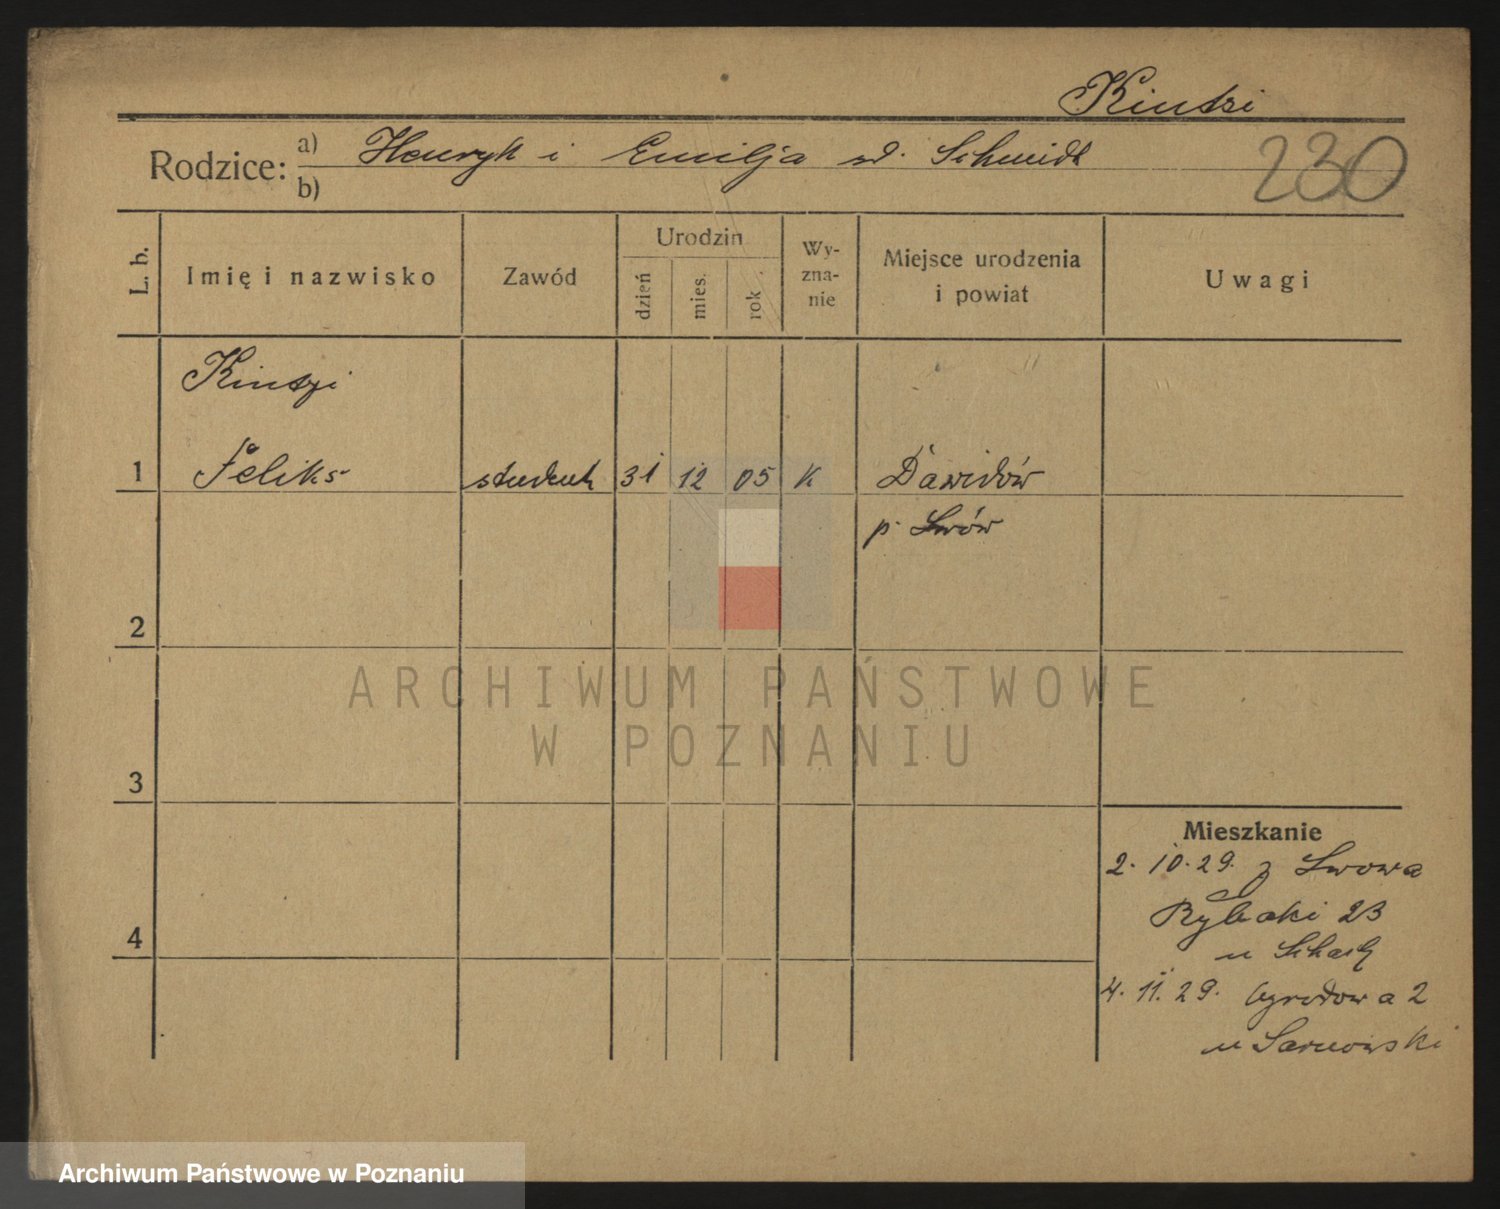 Kintzi
Rodzice:
a) Henryk i Emilja zd. Schmidt
b)
230
L. b.
Imię i nazwisko
Zawód
Urodzin
dzień
mies.
rok
Wy-
zna-
nie
Miejsce urodzenia
i powiat
Uwagi
Kintzi
1 Feliks student 31 12 05 K Dawidów
p. Lwów
2
3
4
Mieszkanie
2. 10. 29. z Lwowa
Rybaki 23
u
4. 11. 29. Ogrodowa 2
u Sarnowski
ARCHIWUM PAŃSTWOWE
W POZNANIU
Archiwum Państwowe w Poznaniu